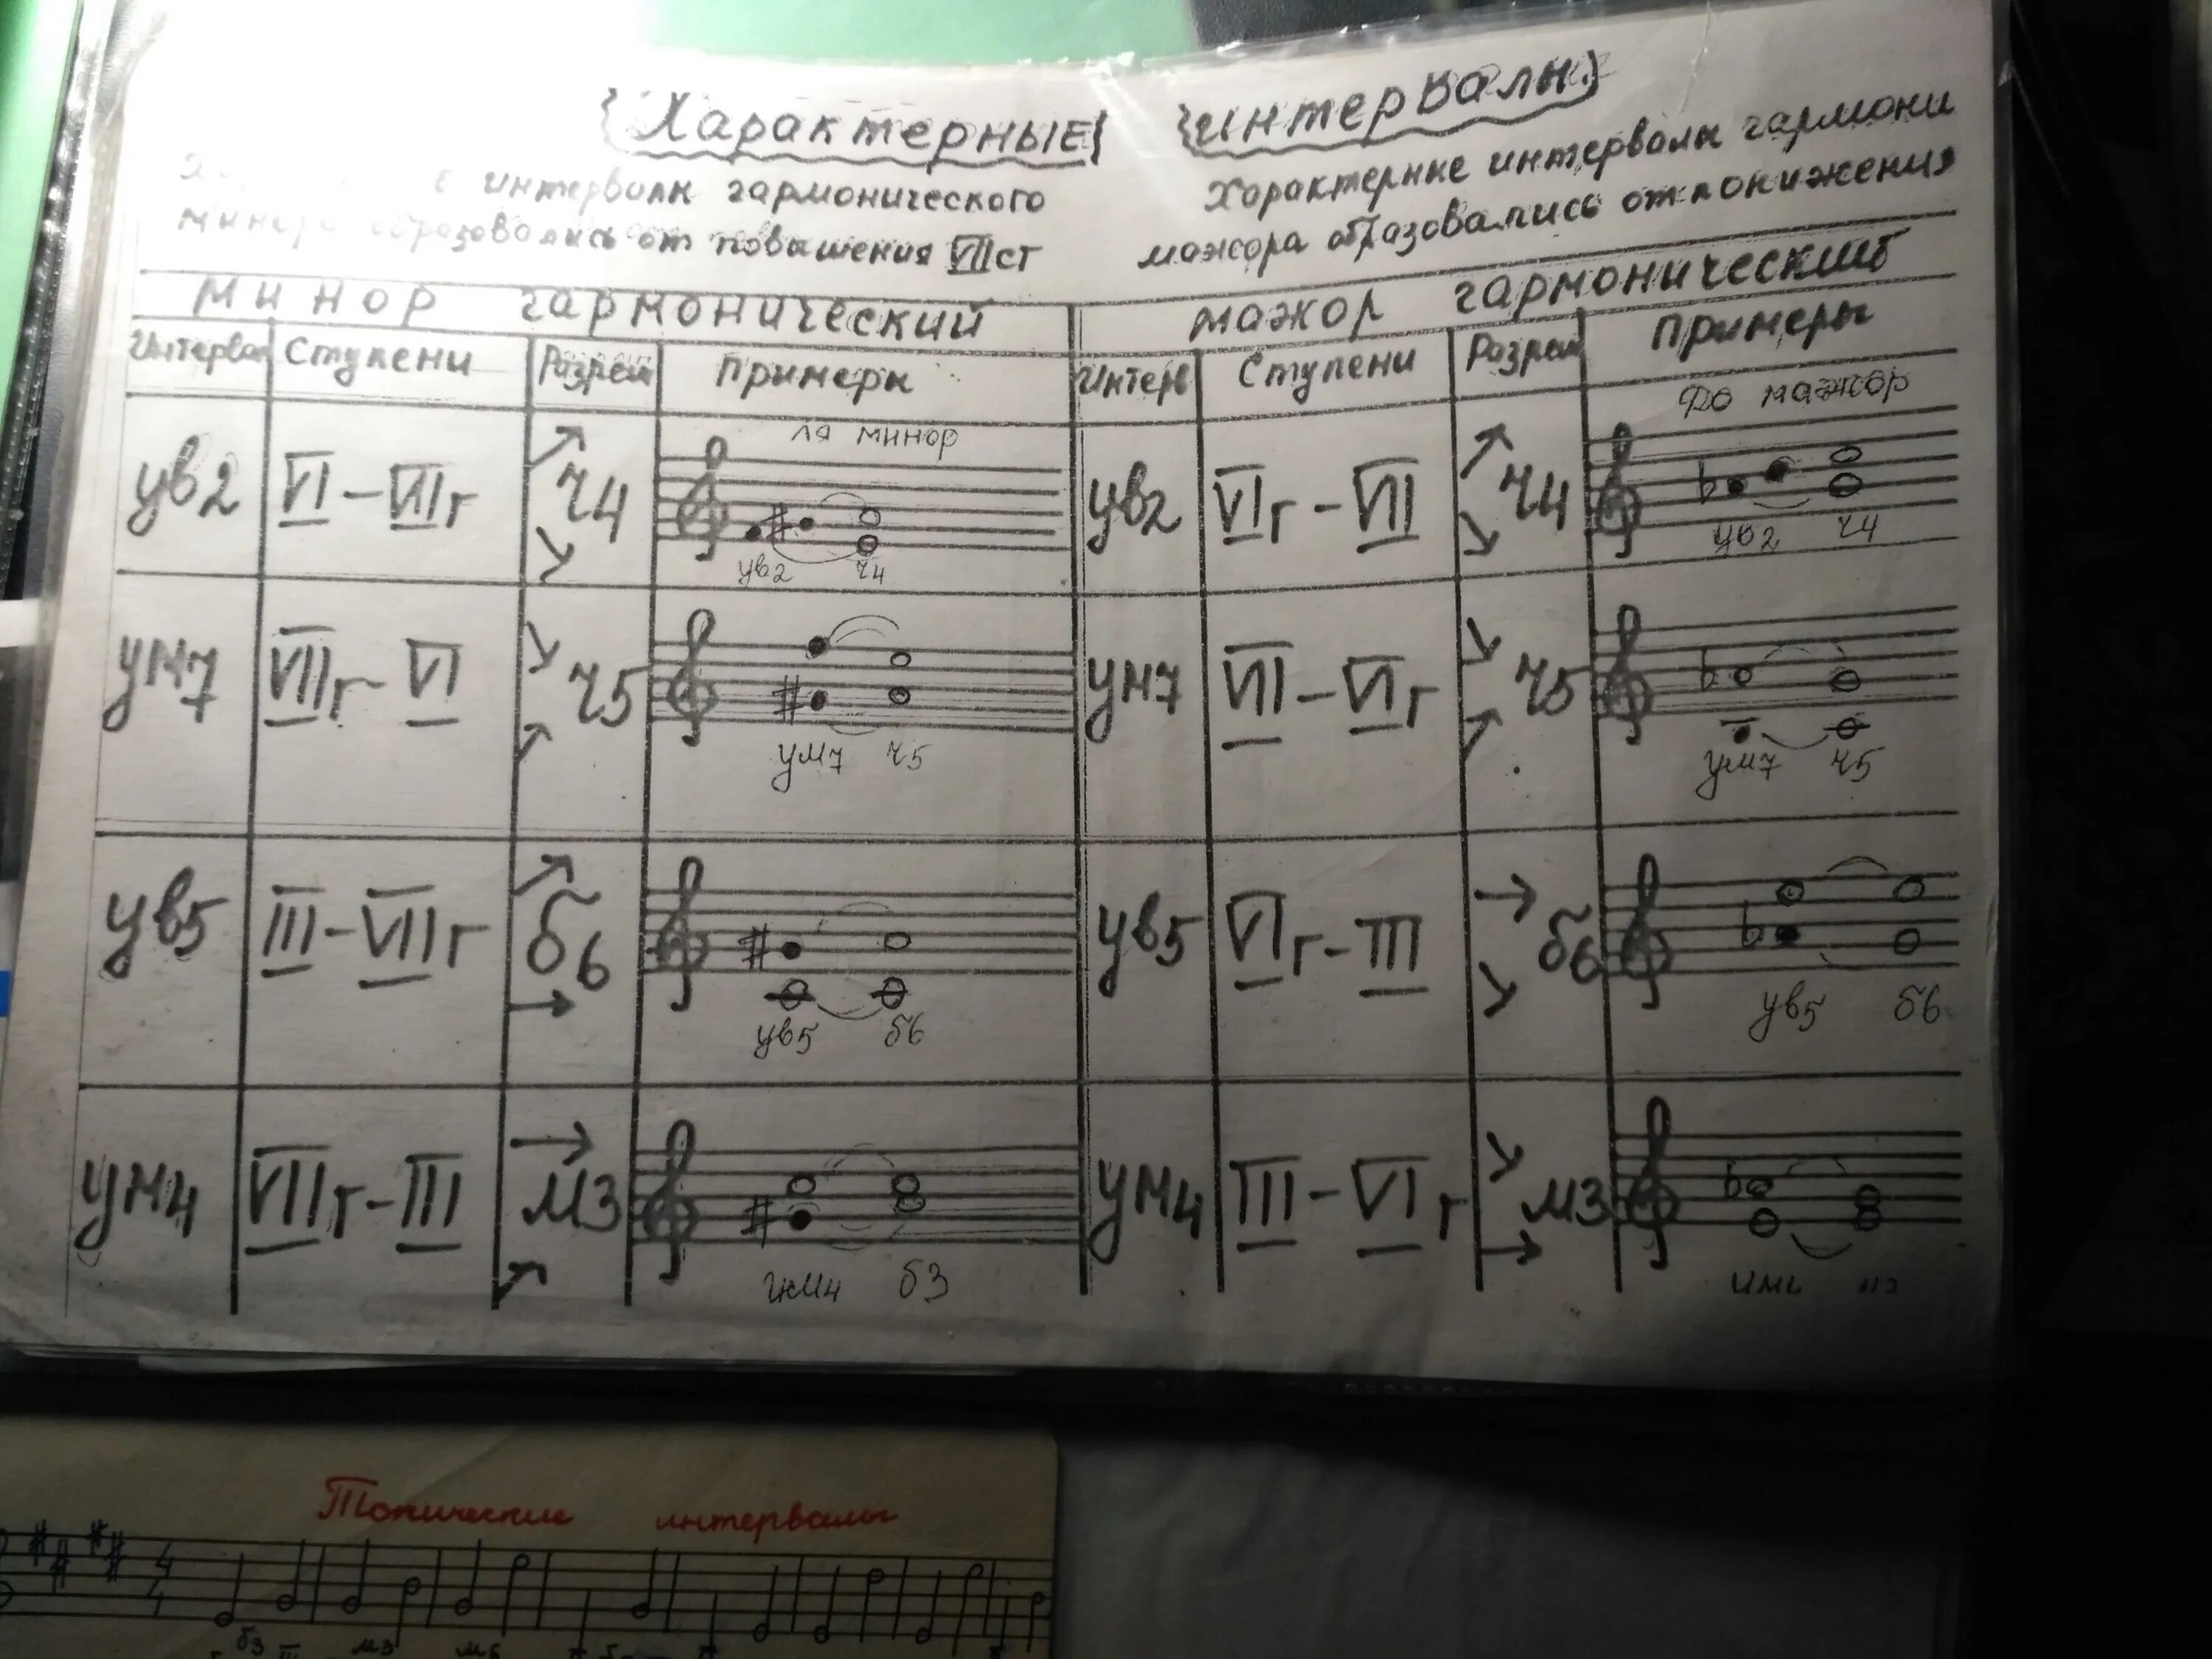 Характерные интервалы
интервалы гармонического
минора образовались от повышения VII ст
Характерные интервалы гармони
мажора образовались от понижения
минор гармонический
мажор гармонический
Интервал Ступени Разреш Примеры
Интерв Ступени Разреш Примеры
ля минор
До мажор
ув2 VI-VIIг ч4
ув2 ч4
ув2 VIг-VII ч4
ув2 ч4
ум7 VIIг-VI ч5
ум7 ч5
ум7 VII-VIг ч5
ум7 ч5
ув5 III-VIIг б6
ув5 б6
ув5 VIг-III б6
ув5 б6
ум4 VIIг-III м3
ум4 б3
ум4 III-VIг м3
Тонические интервалы
б3 III м3 м6